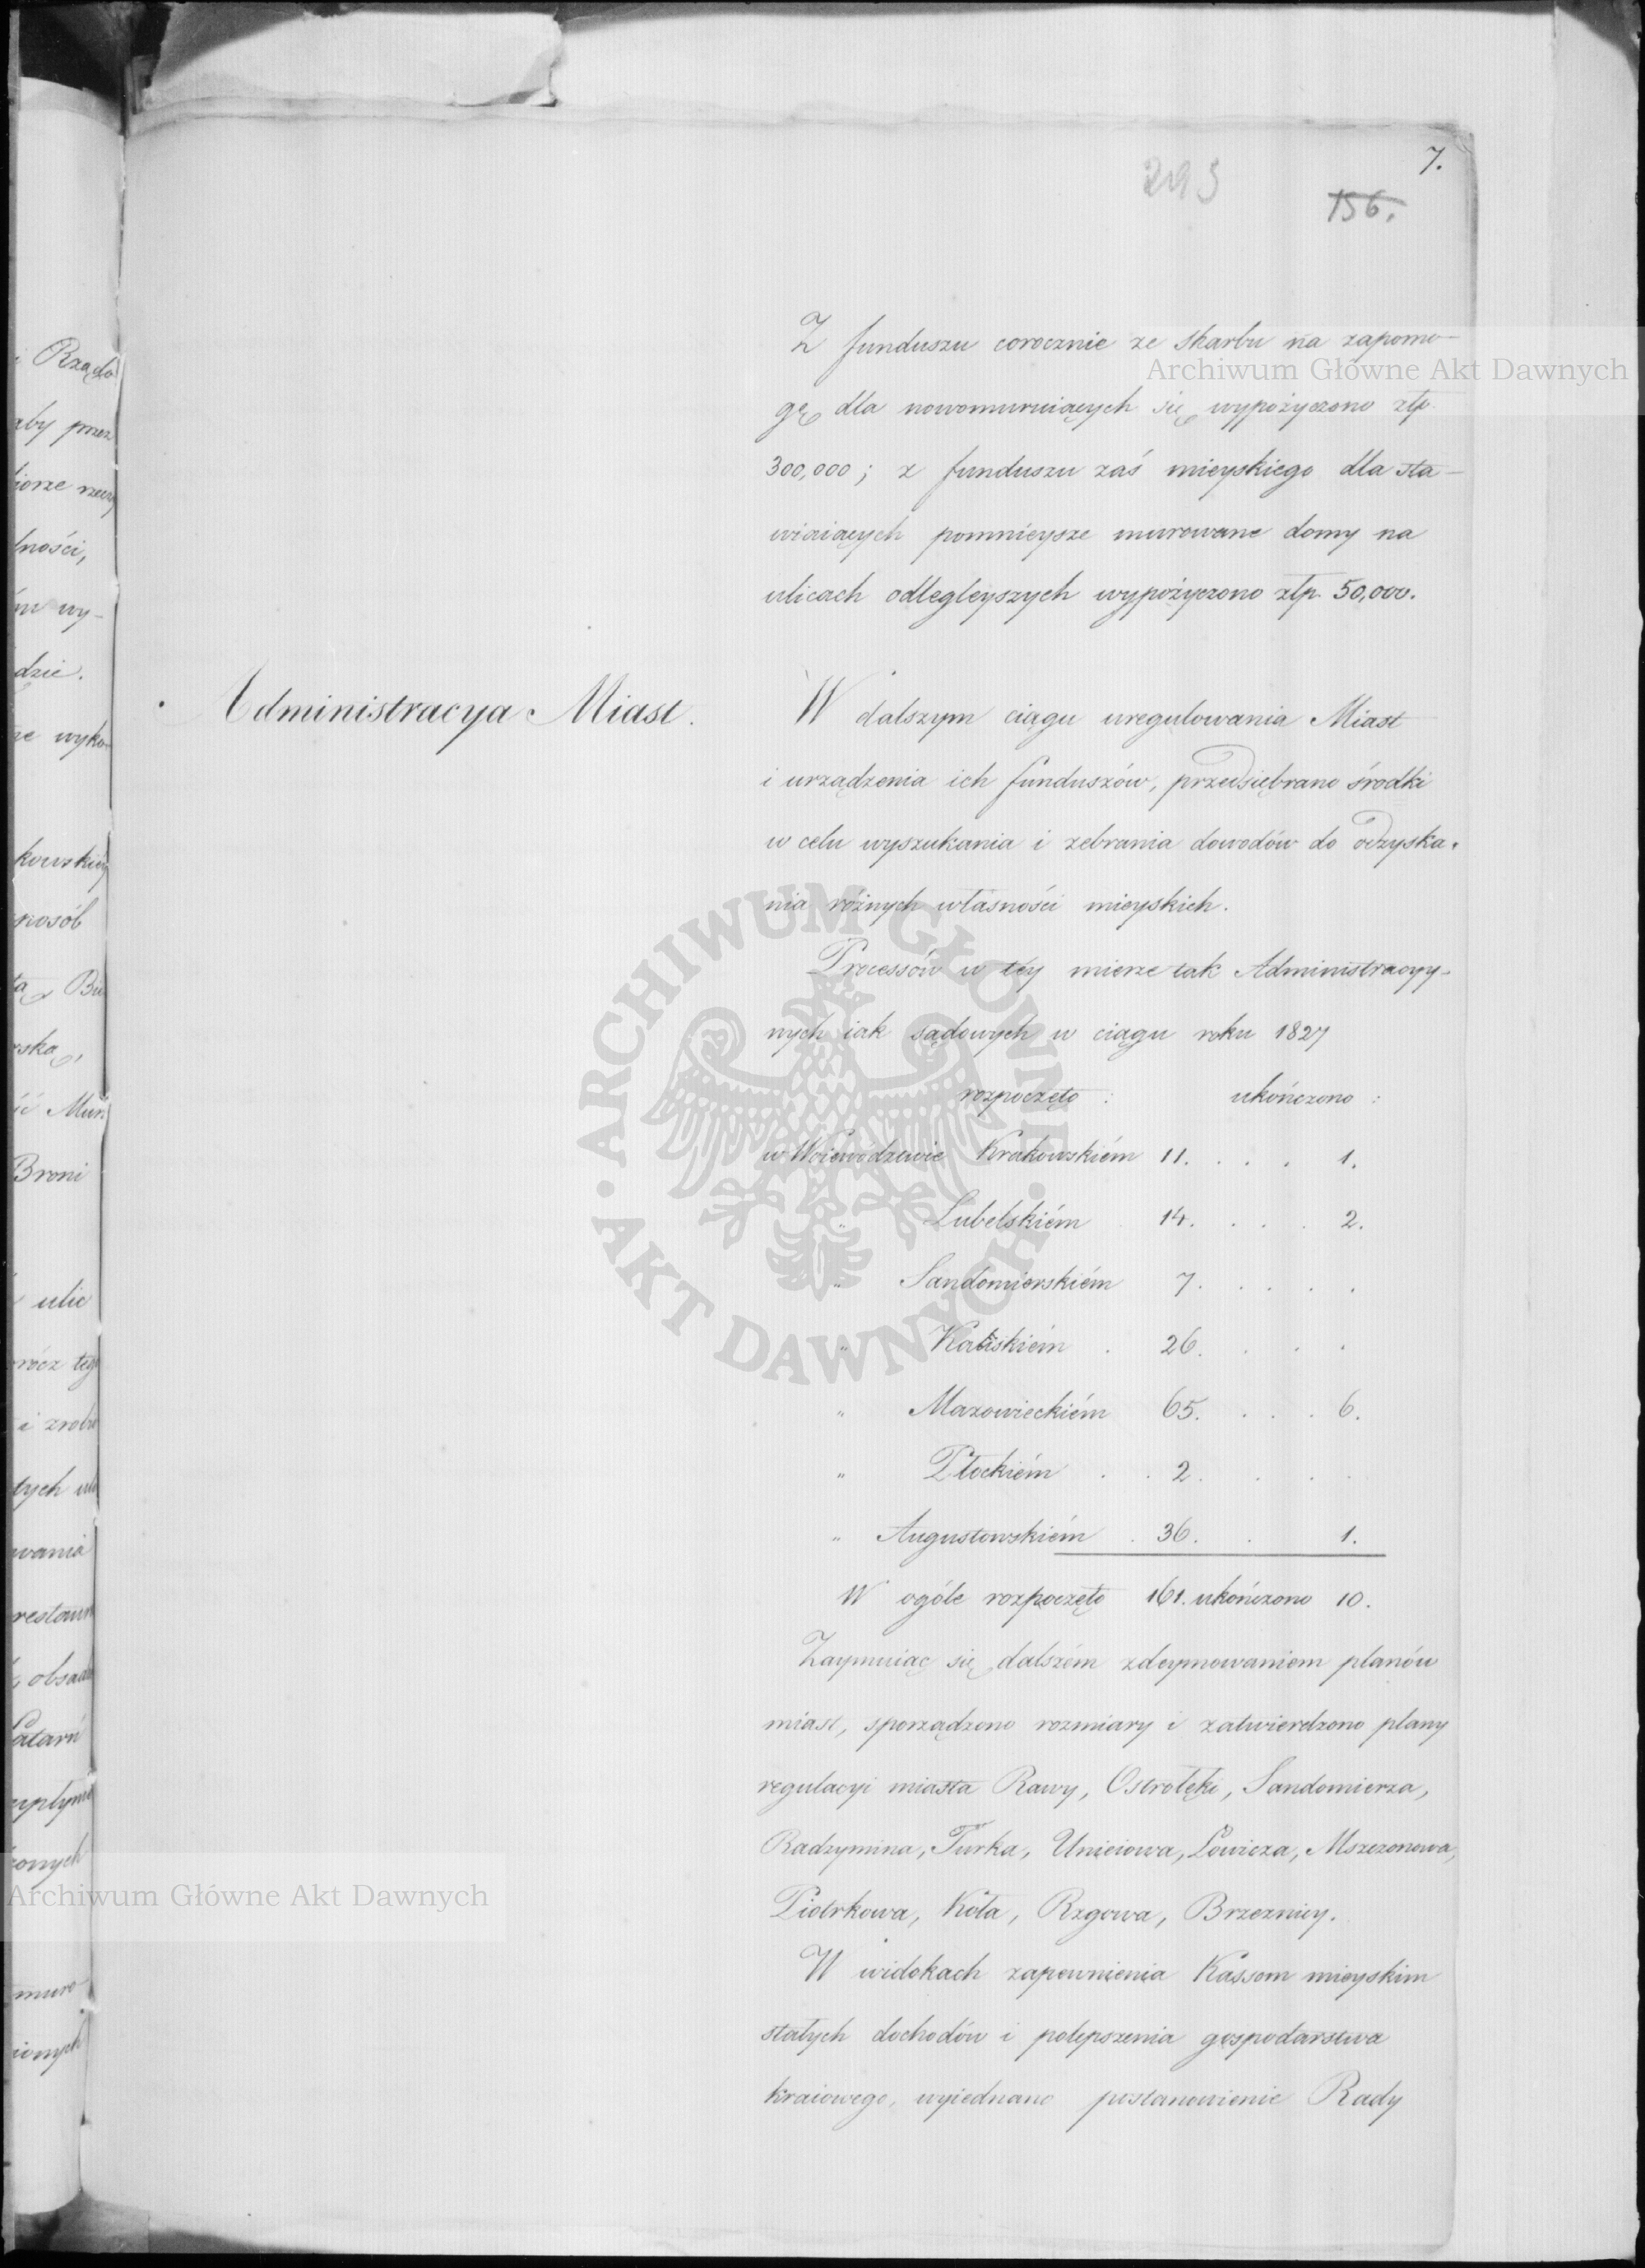 7.
156.
Z funduszu corocznie ze skarbu na zapomo-
gę dla nowomuruiących się wypożyczono złp.
300,000; z funduszu zaś mieyskiego dla sta-
wiaiących pomnieysze murowane domy na
ulicach odlegleyszych wypożyczono złp. 50,000.
Administracya Miast.
W dalszym ciągu uregulowania Miast
i urządzenia ich funduszów, przedsiębrano środki
w celu wyszukania i zebrania dowodów do odzyska-
nia różnych własności mieyskich.
Processów w téy mierze tak Administracyy-
nych iak sądowych w ciągu roku 1827
rozpoczęto : ukończono :
w Woiewództwie Krakowskiém 11. . . . 1.
" Lubelskiém . 14. . . . 2.
" Sandomierskiém 7. . . . .
" Kaliskiém . 26. . . .
" Mazowieckiém 65. . . . 6.
" Płockiém . . 2. . . .
" Augustowskiém . 36. . 1.
W ogóle rozpoczęto 161. ukończono 10.
Zaymuiąc się dalszém zdeymowaniem planów
miast, sporządzono rozmiary i zatwierdzono plany
regulacyi miasta Rawy, Ostrołęki, Sandomierza,
Radzymina, Turka, Unieiowa, Łowicza, Mszczonowa,
Piotrkowa, Koła, Rzgowa, Brzeznicy.
W widokach zapewnienia Kassom mieyskim
stałych dochodów i polepszenia gospodarstwa
kraiowego, wyiednano postanowienie Rady
Archiwum Główne Akt Dawnych
Archiwum Główne Akt Dawnych
ARCHIWUM GŁÓWNE · AKT DAWNYCH ·